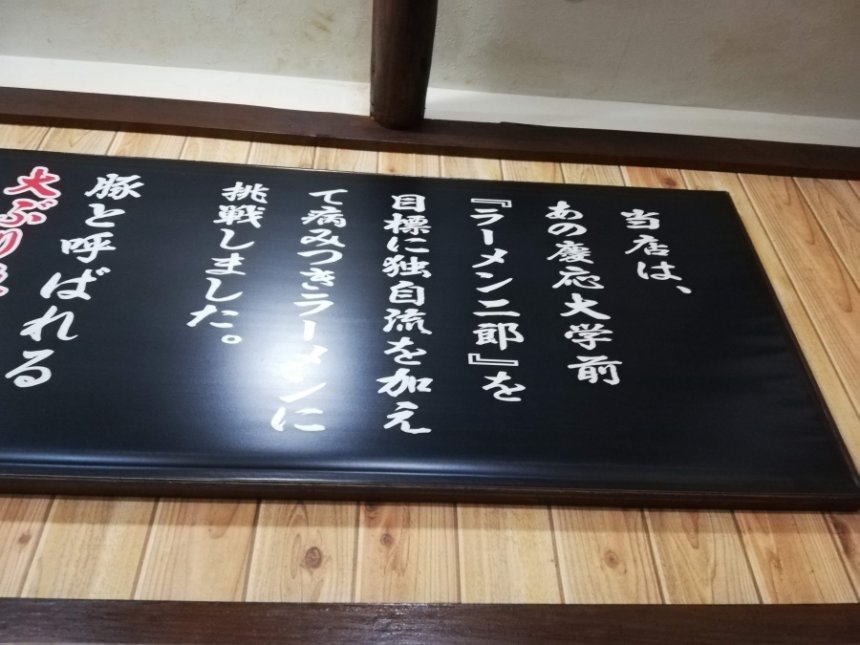 当店は、
あの慶応大学前
『ラーメン二郎』を
目標に独自流を加え
て病みつきラーメンに
挑戦しました。
豚と呼ばれる
大ぶり